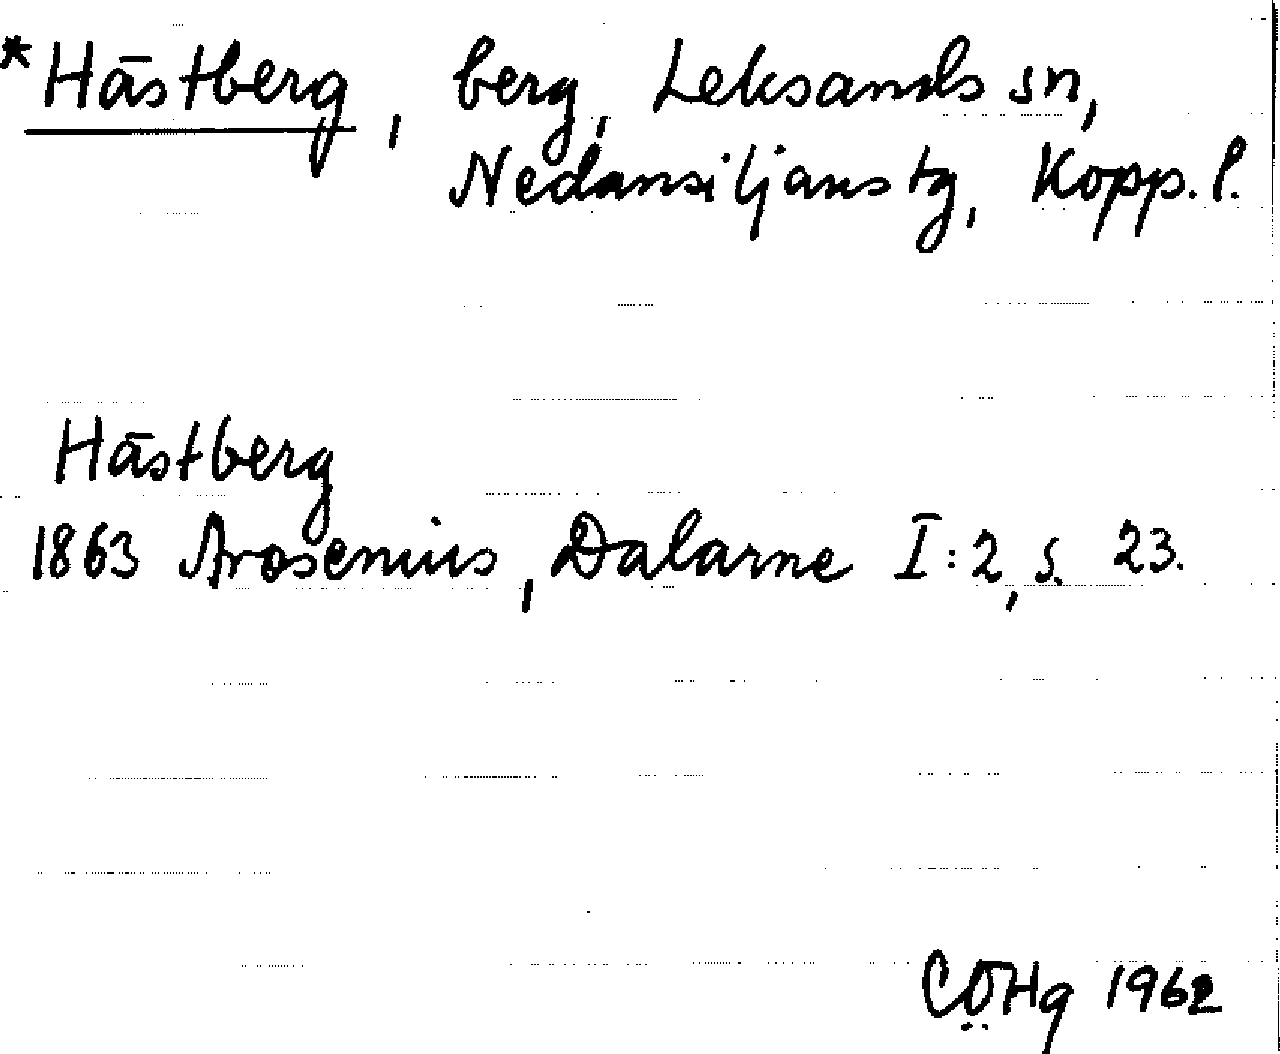 *Hästberg, berg, Leksands sn,
Nedansiljans tg, Kopp. l.
Hästberg
1863 Arosenius, Dalarne I:2, s. 23.
CÖHg 1962